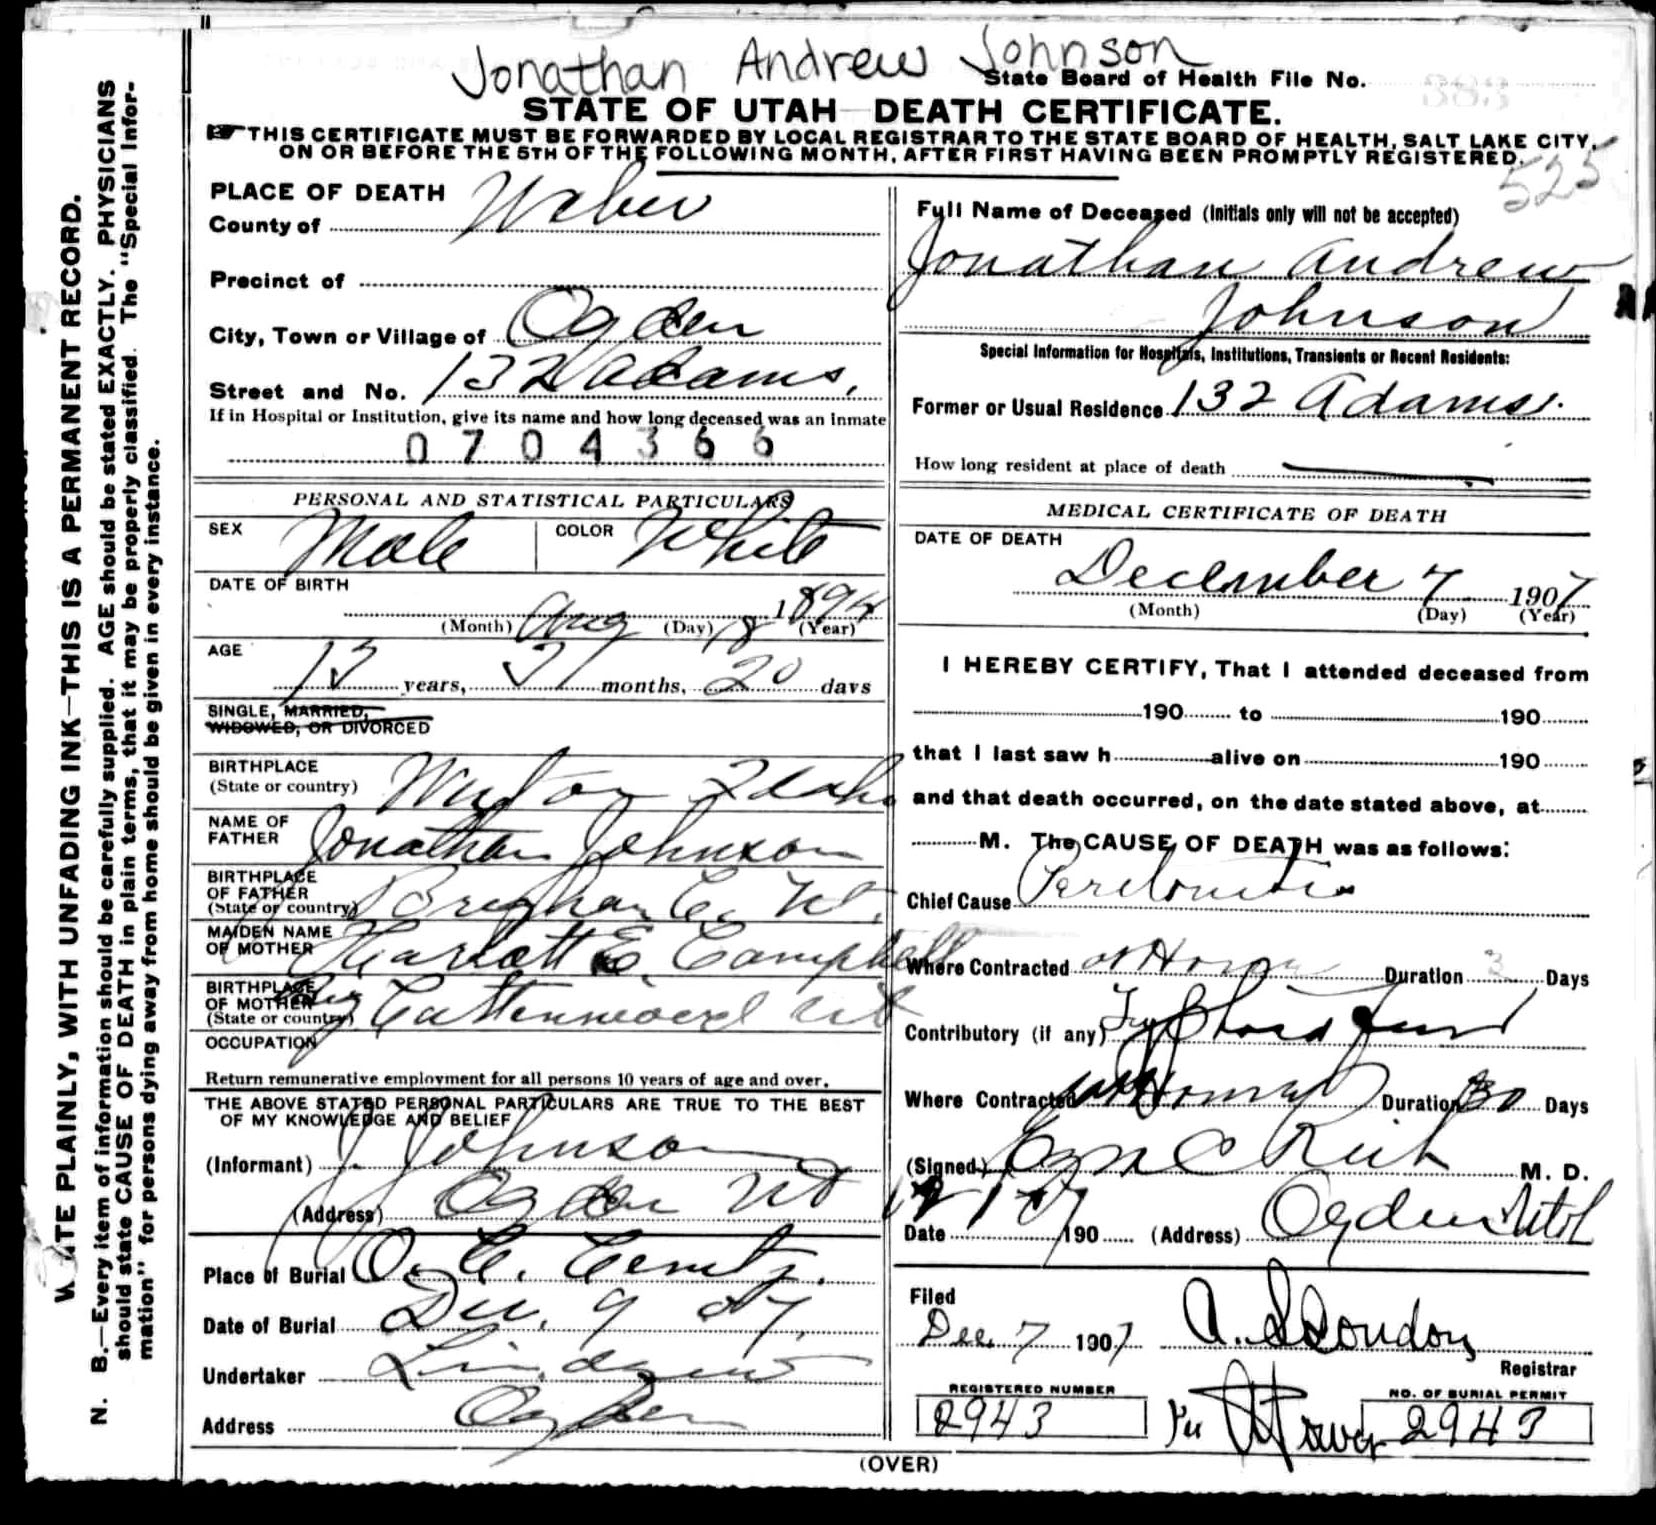 Jonathan Andrew Johnson
State Board of Health File No. 383
STATE OF UTAH DEATH CERTIFICATE.
THIS CERTIFICATE MUST BE FORWARDED BY LOCAL REGISTRAR TO THE STATE BOARD OF HEALTH, SALT LAKE CITY,
ON OR BEFORE THE 5TH OF THE FOLLOWING MONTH, AFTER FIRST HAVING BEEN PROMPTLY REGISTERED.
525
PLACE OF DEATH
County of Weber
Precinct of
City, Town or Village of Ogden
Street and No. 132 Adams.
If in Hospital or Institution, give its name and how long deceased was an inmate
0704366
PERSONAL AND STATISTICAL PARTICULARS
SEX Male COLOR White
DATE OF BIRTH
Aug 18 1894
(Month) (Day) (Year)
AGE
13 years, 3 months, 20 days
SINGLE, MARRIED,
WIDOWED, OR DIVORCED
BIRTHPLACE
(State or country) Idaho
NAME OF
FATHER Jonathan Johnson
BIRTHPLACE
OF FATHER
(State or country) Brigham C. Ut.
MAIDEN NAME
OF MOTHER Harlett E. Campbell
BIRTHPLACE
OF MOTHER
(State or country) Ut
OCCUPATION
Return remunerative employment for all persons 10 years of age and over.
THE ABOVE STATED PERSONAL PARTICULARS ARE TRUE TO THE BEST
OF MY KNOWLEDGE AND BELIEF
(Informant) J. Johnson
(Address) Ogden Ut
Place of Burial O. C. Cemty.
Date of Burial Dec. 9 07.
Undertaker Lindquist
Address Ogden
Full Name of Deceased (Initials only will not be accepted)
Jonathan Andrew
Johnson
Special Information for Hospitals, Institutions, Transients or Recent Residents:
Former or Usual Residence 132 Adams.
How long resident at place of death
MEDICAL CERTIFICATE OF DEATH
DATE OF DEATH
December 7 1907
(Month) (Day) (Year)
I HEREBY CERTIFY, That I attended deceased from
190 to 190
that I last saw h alive on 190
and that death occurred, on the date stated above, at
M. The CAUSE OF DEATH was as follows:
Chief Cause Peritonitis
Where Contracted at Home Duration 3 Days
Contributory (if any) Typhoid Fever
Where Contracted at Home Duration 30 Days
(Signed) C Rich M. D.
Date 12 7 07 190 (Address) Ogden Utah
Filed
Dec. 7 1907 A. S Condon
Registrar
REGISTERED NUMBER
2943
Per
NO. OF BURIAL PERMIT
2943
(OVER)
WRITE PLAINLY, WITH UNFADING INK—THIS IS A PERMANENT RECORD.
N. B.—Every item of information should be carefully supplied. AGE should be stated EXACTLY. PHYSICIANS
should state CAUSE OF DEATH in plain terms, that it may be properly classified. The "Special Infor-
mation" for persons dying away from home should be given in every instance.